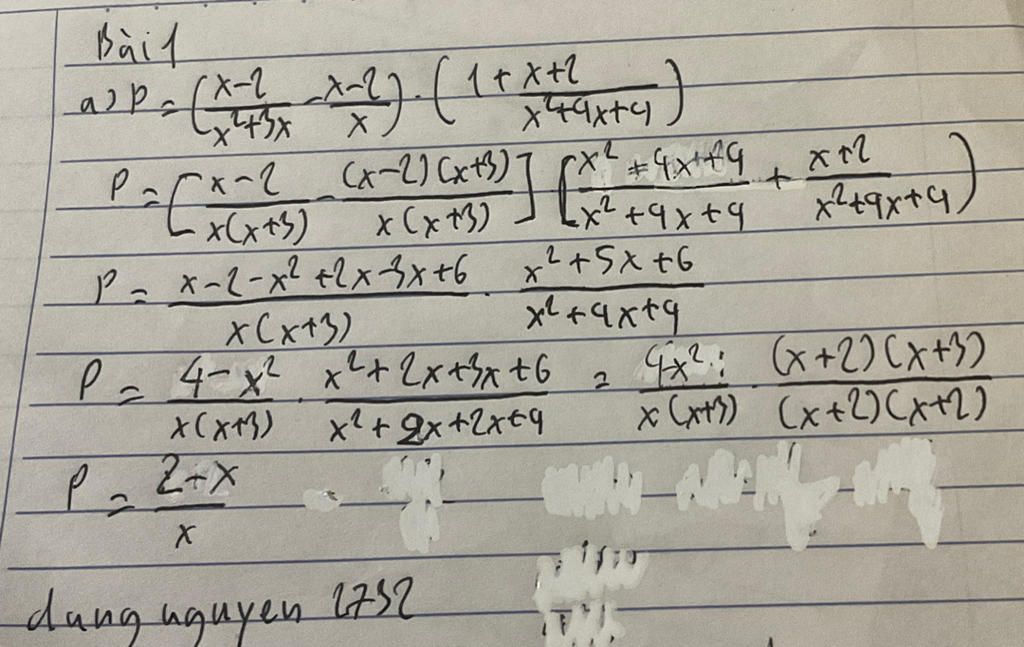 Bài 1
a) P = (x-2/x²+3x - x-2/x) . (1 + x+2/x²+4x+4)
P = [x-2/x(x+3) - (x-2)(x+3)/x(x+3)] [x²+4x+4/x²+4x+4 + x+2/x²+4x+4)
P = x-2-x²+2x-3x+6/x(x+3) . x²+5x+6/x²+4x+4
P = 4-x²/x(x+3) . x²+2x+3x+6/x²+2x+2x+4 = 4-x²/x(x+3) : (x+2)(x+3)/(x+2)(x+2)
P = 2-x/x
dang nguyen 2732